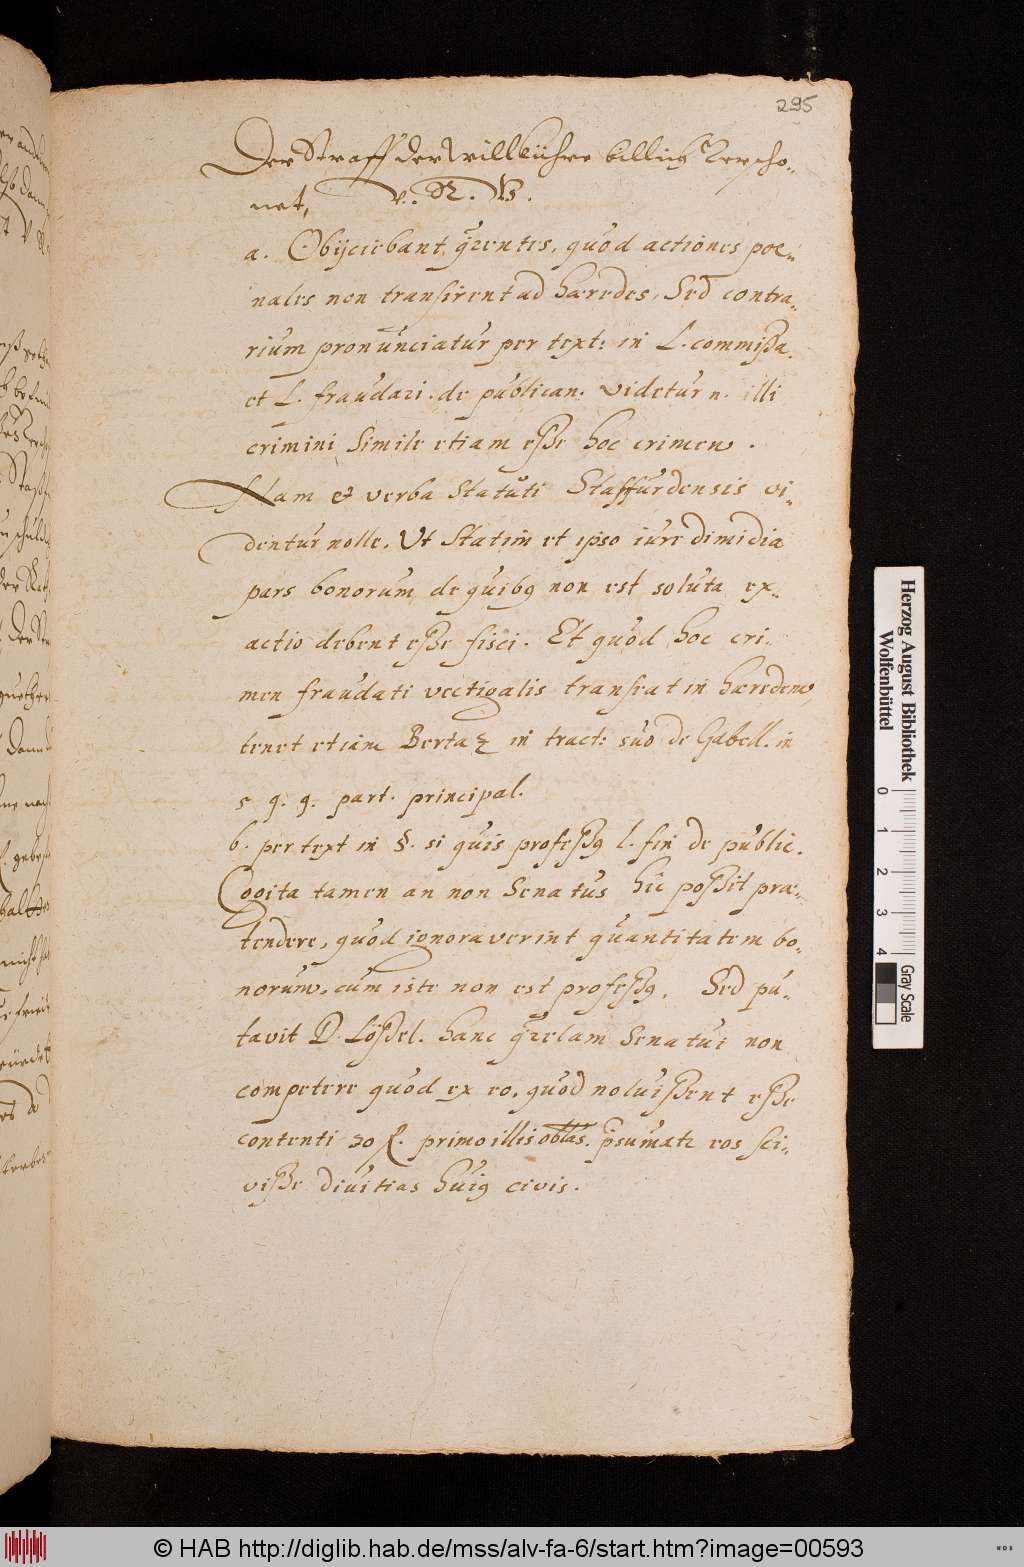 295
Der Straff der Willkühre billich Verscho-
net, V. R. W.
a. Obijciebant qrentes, quòd actiones poe-
nales non transirent ad hæredes, Sed contra-
rium pronunciatur per text: in L. commissa.
et L. fraudati. de publican: videtur n. illi
crimini simile etiam esse hoc crimen.
Nam et verba Statuti Staffurdensis vi-
dentur nolle, Ut Statim et ipso iure dimidia
pars bonorum de quibq non est soluta ex-
actio debent esse fisci. Et quòd hoc cri-
men fraudati vectigalis transeat in hæredem,
tenet etiam Berta in tract: suo de Gabell. in
5 q. 9. part. principal.
b. per text in §. si quis professq l. fin de public.
Cogita tamen an non Senatus hîc possit præ-
tendere, quòd ignoraverint quantitatem bo-
norum, cùm iste non est professq. Sed pu-
tavit D. Lössel. hanc qrelam Senatui non
competere quòd ex eo, quòd noluissent esse
contenti 30 f. primo illis oblàs. psumatr eos sci-
visse divitias huiq civis.
Herzog August Bibliothek
Wolfenbüttel
0 1 2 3 4
Gray Scale
© HAB http://diglib.hab.de/mss/alv-fa-6/start.htm?image=00593